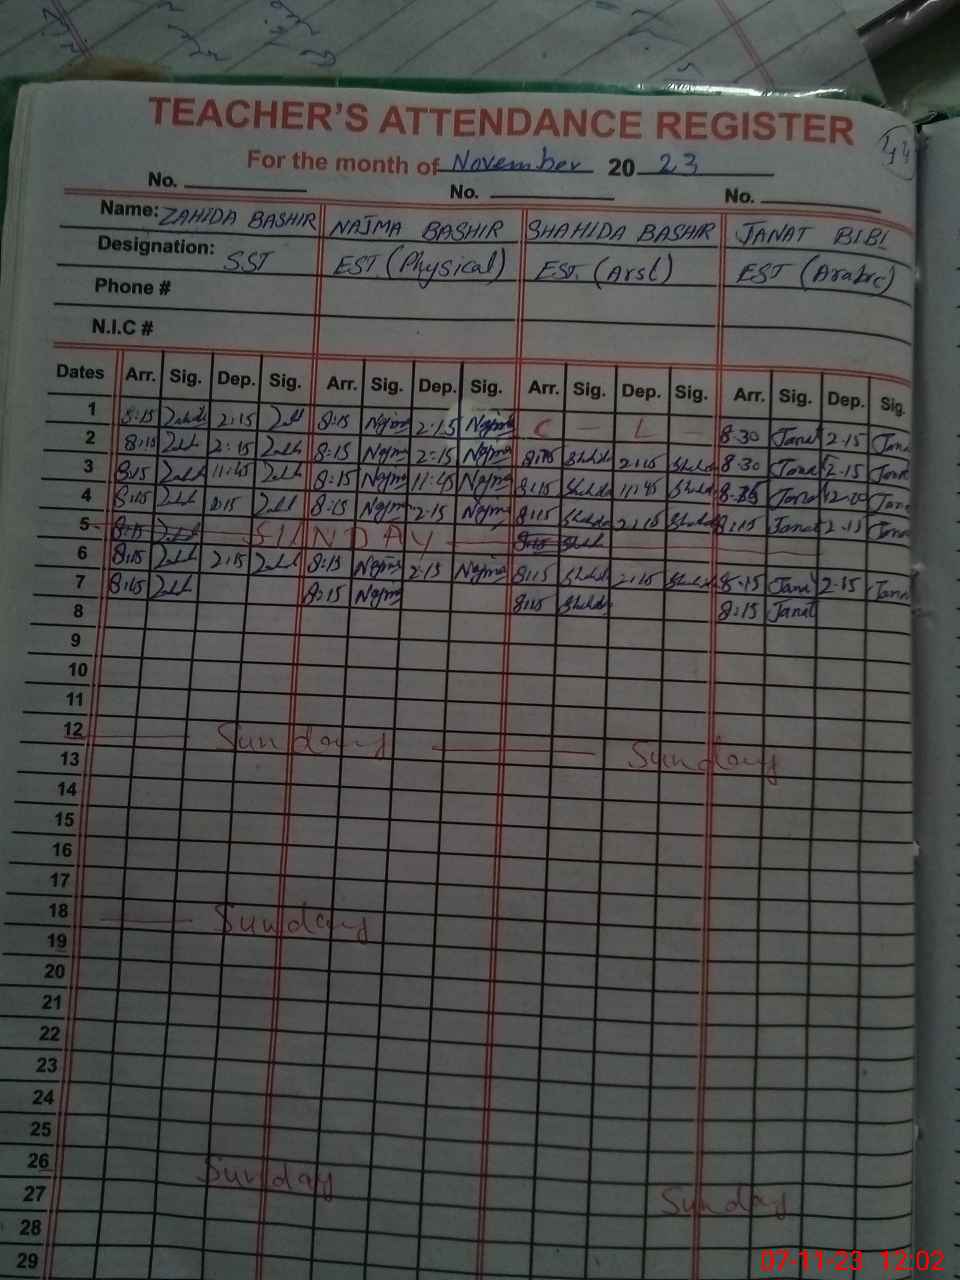 TEACHER'S ATTENDANCE REGISTER
For the month of November 20 23
No. No. No.
Name: ZAHIDA BASHIR NAJMA BASHIR SHAHIDA BASHIR JANAT BIBI
Designation: SST EST (Physical) EST. (Arst) EST (Arabic)
Phone #
N.I.C #
Dates Arr. Sig. Dep. Sig. Arr. Sig. Dep. Sig. Arr. Sig. Dep. Sig. Arr. Sig. Dep. Sig.
1 8:15 2:15 8:15 Najma 2:15 Najma C — L — 8-30 Janat 2-15 Jana
2 8:15 2:15 8:15 Najma 2:15 Najma 8:15 2:15 8-30 Janat 2-15 Jana
3 8:15 11:45 8:15 Najma 11:45 Najma 8:15 11:45 Janat 12-00 Jana
4 8:15 2:15 8:15 Najma 2:15 Najma 8:15 2:15 8:15 Janat 2-15 Jana
5 SUNDAY
6 8:15 2:15 8:15 Najma 2:15 Najma 8:15 2:15 8-15 Janat 2-15 Jana
7 8:15 8:15 Najma 8:15 8:15 Janat
8
9
10
11
12 Sunday Sunday
13
14
15
16
17
18 Sunday
19
20
21
22
23
24
25
26 Sunday Sunday
27
28
29
07-11-23 12:02